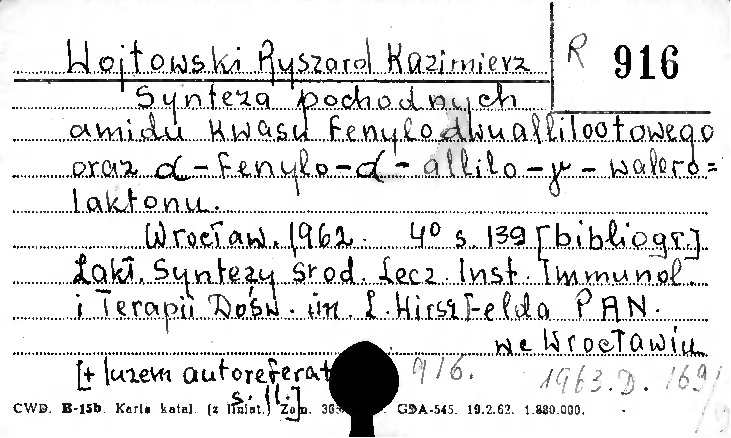 Wojtowski Ryszard Kazimierz R 916
Synteza pochodnych
amidu kwasu fenylodwuallilooctowego
oraz α-fenylo-α-allilo-γ-walero=
laktonu.
Wrocław. 1962. 4° s. 139 [bibliogr.].
Zakł. Syntezy Środ. Lecz. Inst. Immunol.
i Terapii Dośw. im. L. Hirszfelda PAN.
we Wrocławiu
[+ luzem autoreferat 916. 1963.D.169/
s. 11.]
CWD. E-15b. Karta katal. (z liniat.) Zam. GDA-545. 19.2.62. 1.880.000.